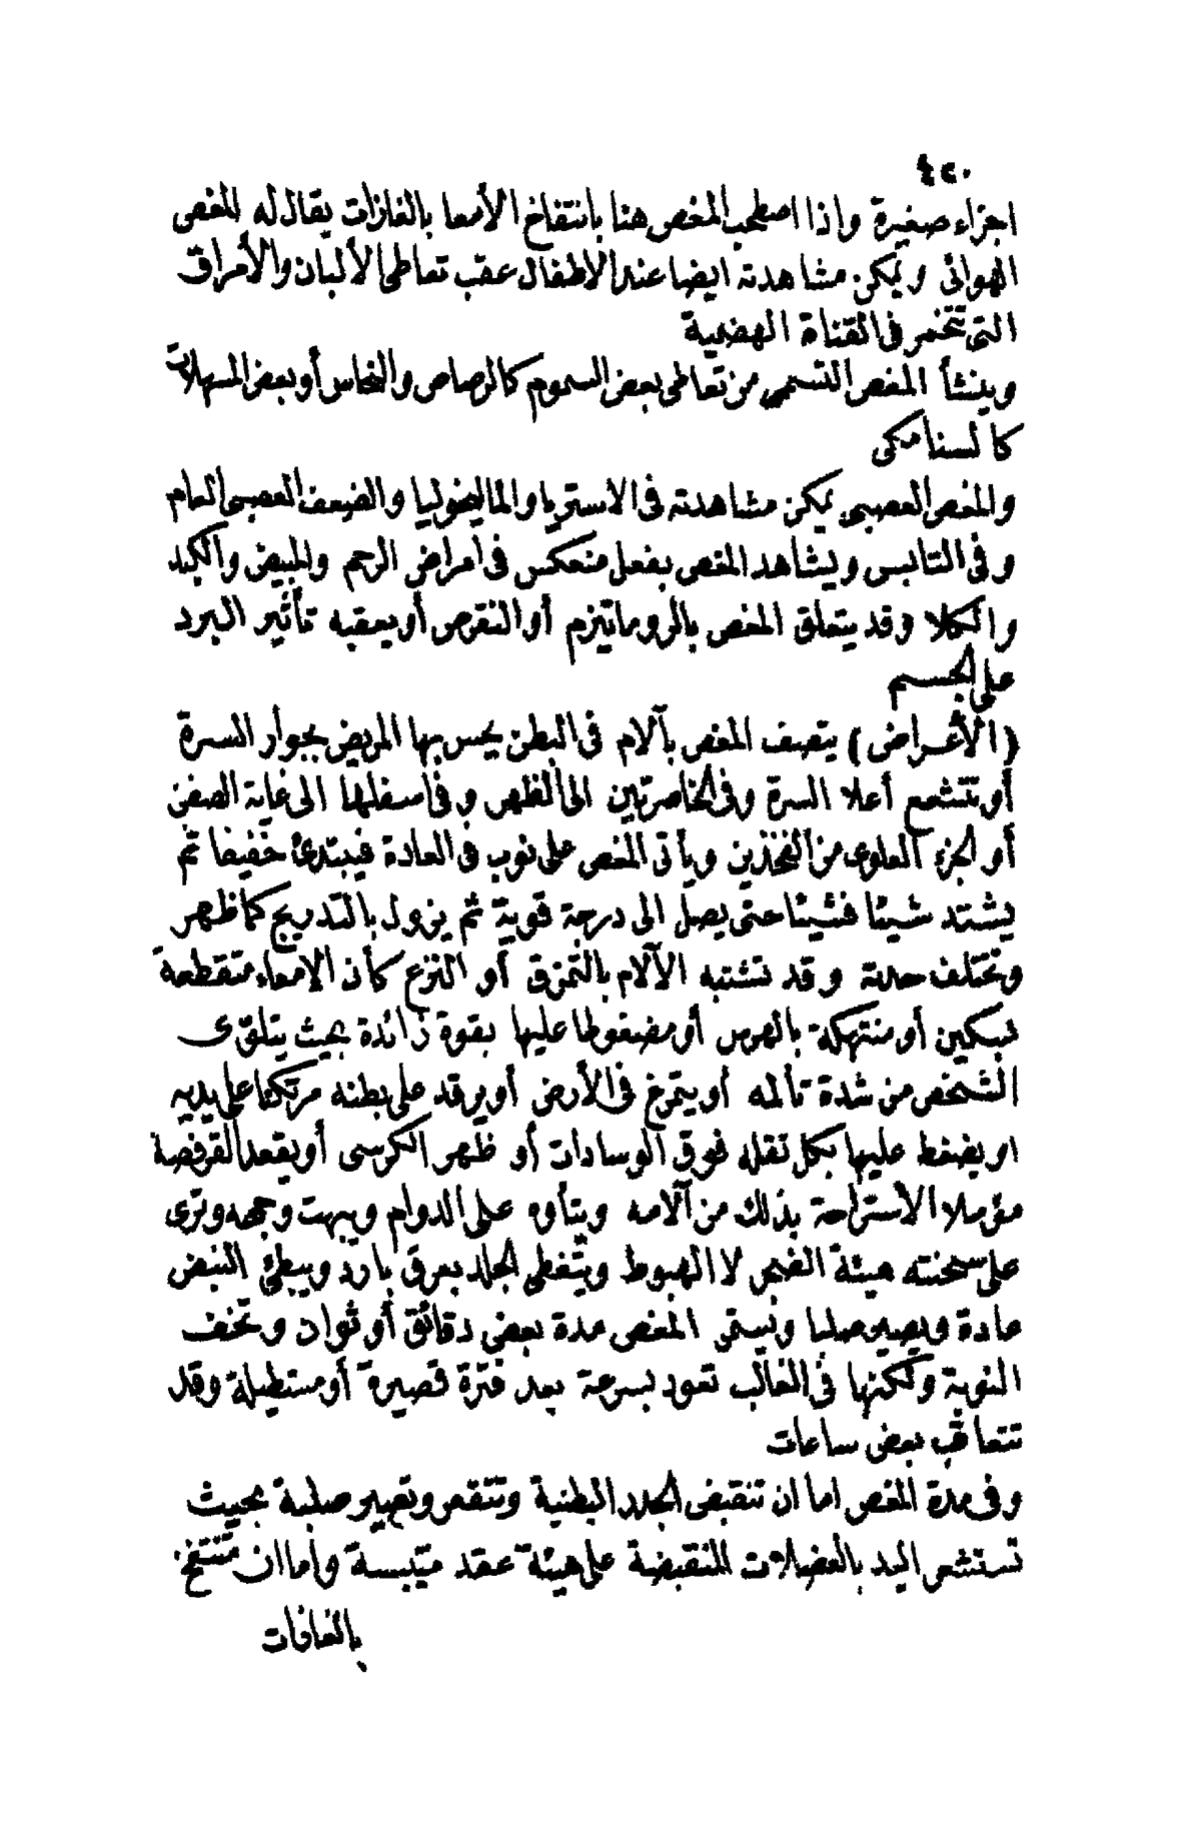 ٤٢٠
اجزاء صغيرة واذا اصطحب المغص هنا بانتفاخ الأمعا بالغازات يقال له المغص
الهوائى ويمكن مشاهدته ايضا عند الاطفال عقب تعاطى الألبان والأمراق
التى تتخمر فى القناة الهضمية
وينشأ المغص التسممى من تعاطى بعض السموم كالرصاص والنحاس أو بعض المسهلات
كالسنامكى
والمغص العصبى يمكن مشاهدته فى الاستريا والماليخوليا والضعف العصبى العام
وفى التابس ويشاهد المغص بفعل منعكس فى امراض الرحم والمبيض والكبد
والكلا وقد يتعلق المغص بالروماتيزم أو النقرص أو يعقبه تأثير البرد
على الجسم
(الأعراض) يتصف المغص بآلام فى البطن يحس بها المريض بجوار السرة
أو تتشعع أعلا السرة وفى الخاصرتين الى الظهر وفى اسفلها الى غاية الصفن
أو الجزء العلوى من الفخذين ويأتى المغص على نوب فى العادة فيبتدئ خفيفا ثم
يشتد شيئا فشيئا حتى يصل الى درجة قوية ثم يزول بالتدريج كما ظهر
وتختلف حدته وقد تشتبه الآلام بالتمزق أو النزع كأن الامعاء متقطعة
بسكين أو منتهكة بالهرس أو مضغوطا عليها بقوة زائدة بحيث يتلوّى
الشخص من شدة تألمه أو يتمرغ فى الأرض أو يرقد على بطنه مرتكنا على يديه
او يضغط عليها بكل ثقله فوق الوسادات أو ظهر الكرسى أو يقعد القرفصة
مؤملا الأستراحة بذلك من آلامه ويتأوه على الدوام ويبهت وجهه وترى
على سحنته هيئة الضجر لا الهبوط ويتغطى الجلد بعرق بارد ويبطئ النبض
عادة ويصير صلبا ويستمر المغص مدة بعض دقائق أو ثوان وتخف
النوبة ولكنها فى الغالب تعود بسرعة بعد فترة قصيرة أو مستطيلة وقد
تتعاقب بعض ساعات
وفى مدة المغص اما ان تنقبض الجدر البطنية وتتقعر وتصير صلبة بحيث
تستشعر اليد بالعضلات المنقبضة على هيئة عقد متيبسة وأما ان تنتفخ
بالغازات